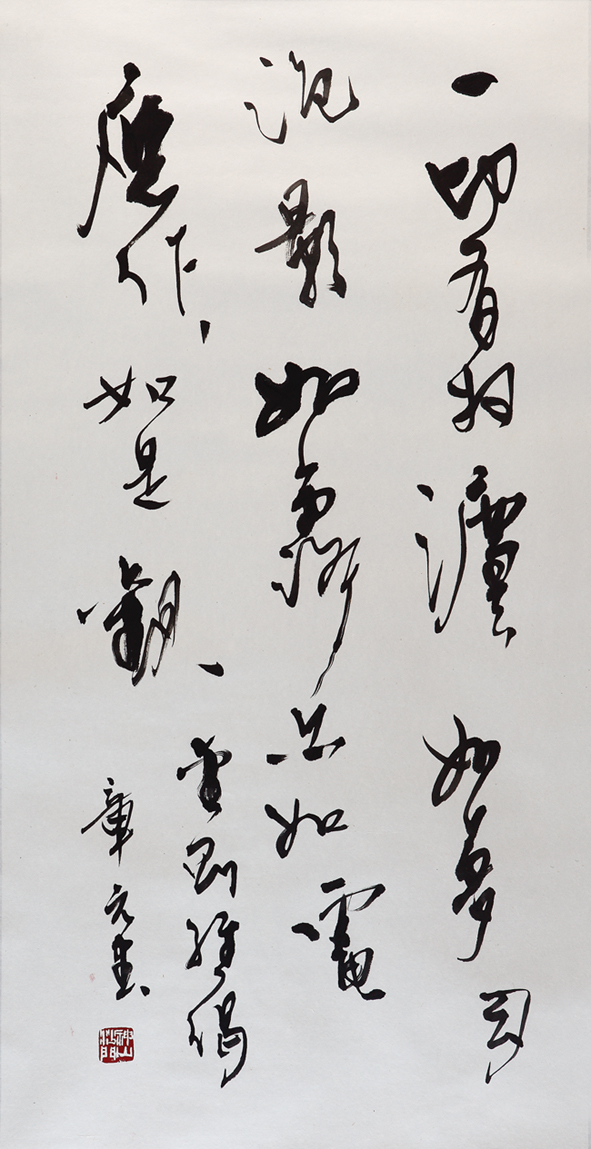 一切有為灋如夢幻
泡影如露亦如電
應作、如是觀、
金剛經偈
章元書